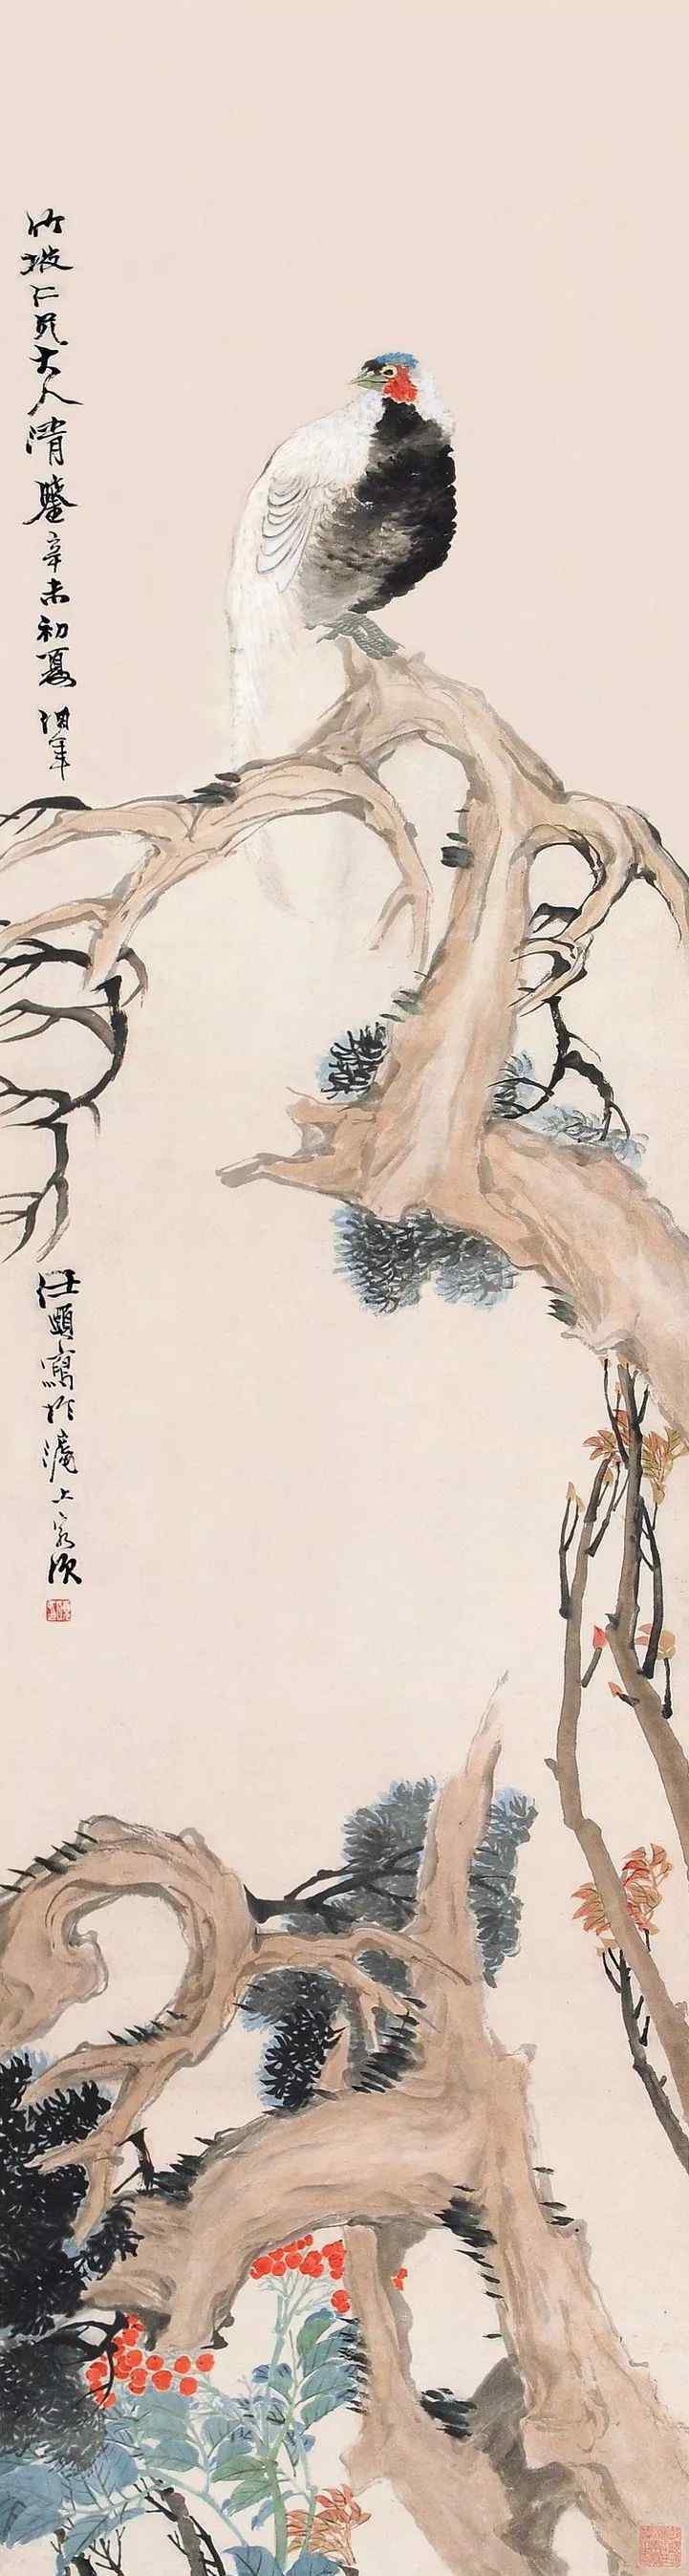 竹坡仁兄大人清鑒辛未初夏伯年
任頤寫於滬上客次